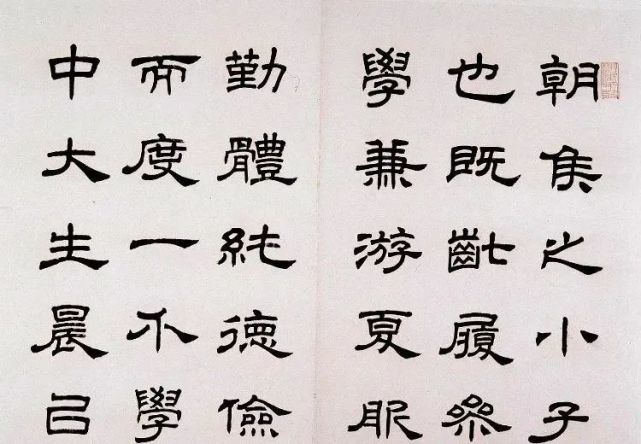 朝侯之小子
也既齔履參
學兼游夏服
勤體純德儉
而度一不學
中大生晨已